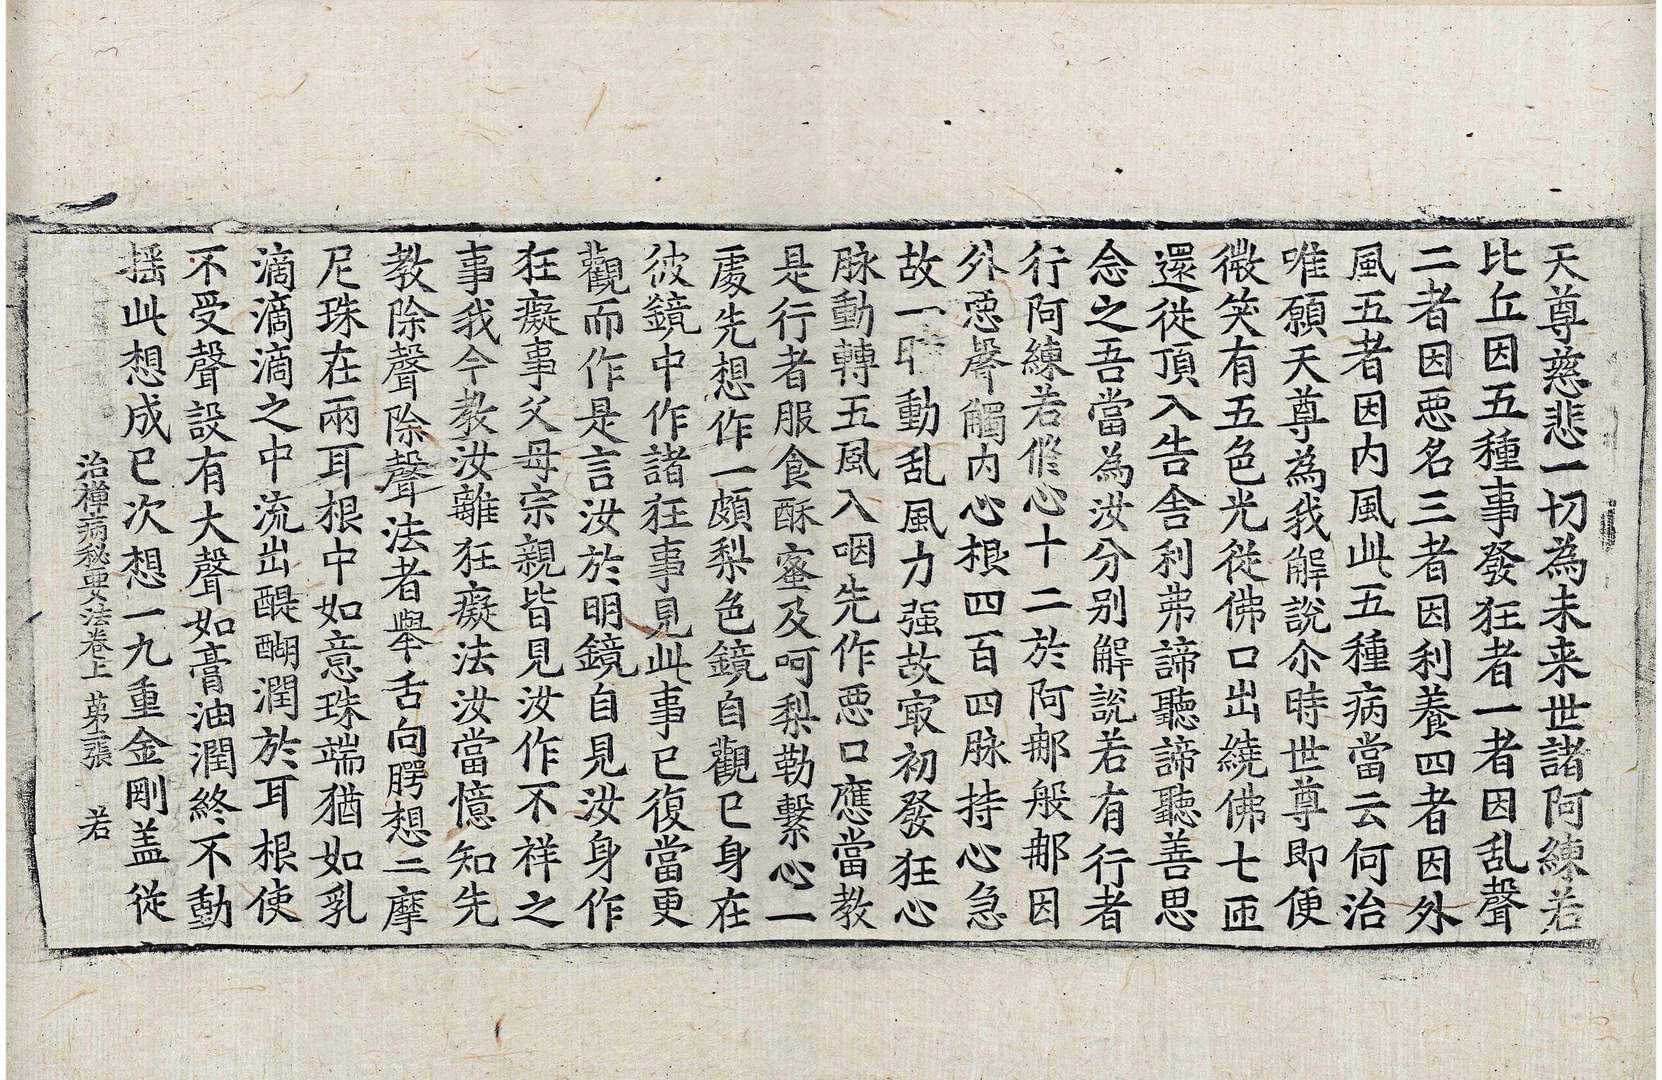 天尊慈悲一切為未来世諸阿練若
比丘因五種事發狂者一者因乱聲
二者因惡名三者因利養四者因外
風五者因内風此五種病當云何治
唯願天尊為我解說尒時世尊即便
微笑有五色光從佛口出繞佛七匝
還從頂入告舎利弗諦聽諦聽善思
念之吾當為汝分别解說若有行者
行阿練若俢心十二於阿䣸般䣸因
外惡聲觸内心根四百四脉持心急
故一時動乱風力强故㝡初發狂心
脉動轉五風入咽先作惡口應當教
是行者服食酥蜜及呵梨勒繋心一
處先想作一頗梨色鏡自觀已身在
彼鏡中作諸狂事見此事已復當更
觀而作是言汝於明鏡自見汝身作
狂癡事父母宗親皆見汝作不祥之
事我今教汝離狂癡法汝當憶知先
教除聲除聲法者舉舌向腭想二摩
尼珠在兩耳根中如意珠端猶如乳
滴滴滴之中流出醍醐潤於耳根使
不受聲設有大聲如膏油潤終不動
揺此想成已次想一九重金剛盖從
治禪病秘要法卷上 苐二張 若